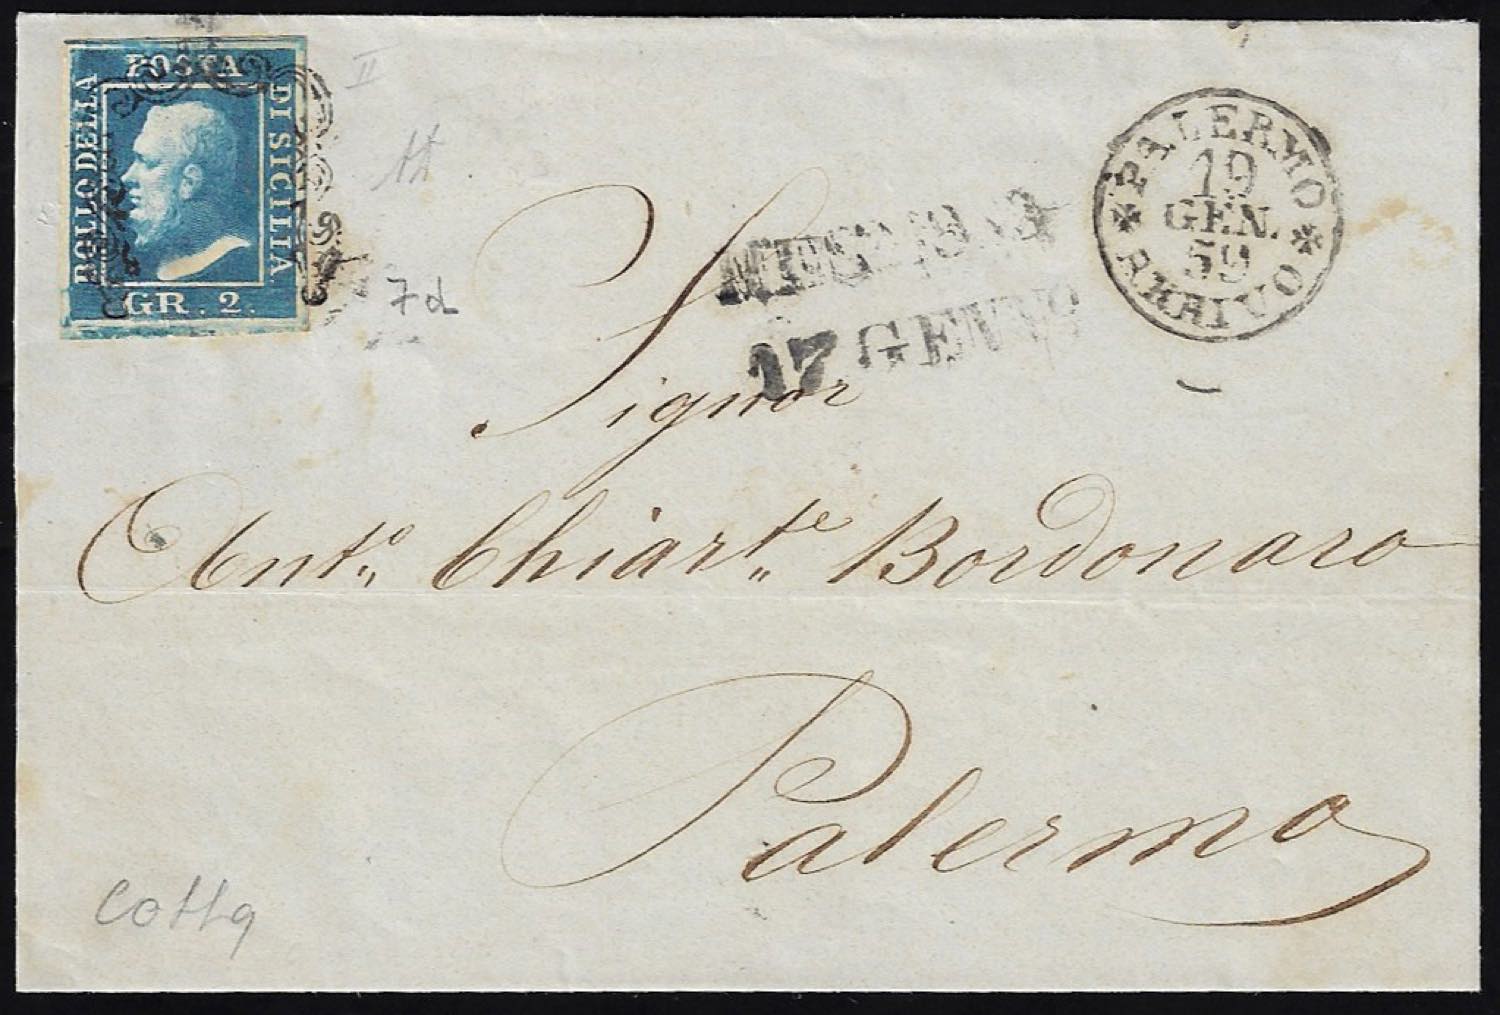 POSTA
BOLLO DELLA
DI SICILIA
GR. 2.
II
7d
MESSINA
17 GENNO
PALERMO
19
GEN.
59
ARRIVO
Signor
Anto. Chiarte. Bordonaro
Palermo